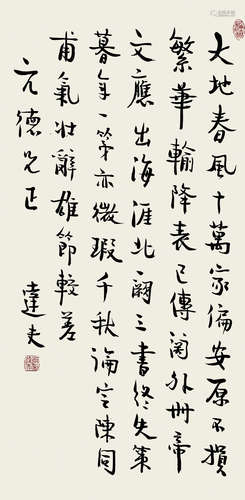 大地春風十萬家偏安原不損
繁華輸降表已傳關外冊帝
文應出海涯北闕三書終失策
暮年一第亦微瑕千秋論定陳同
甫氣壯辭雄節較差
亢德兄正
達夫